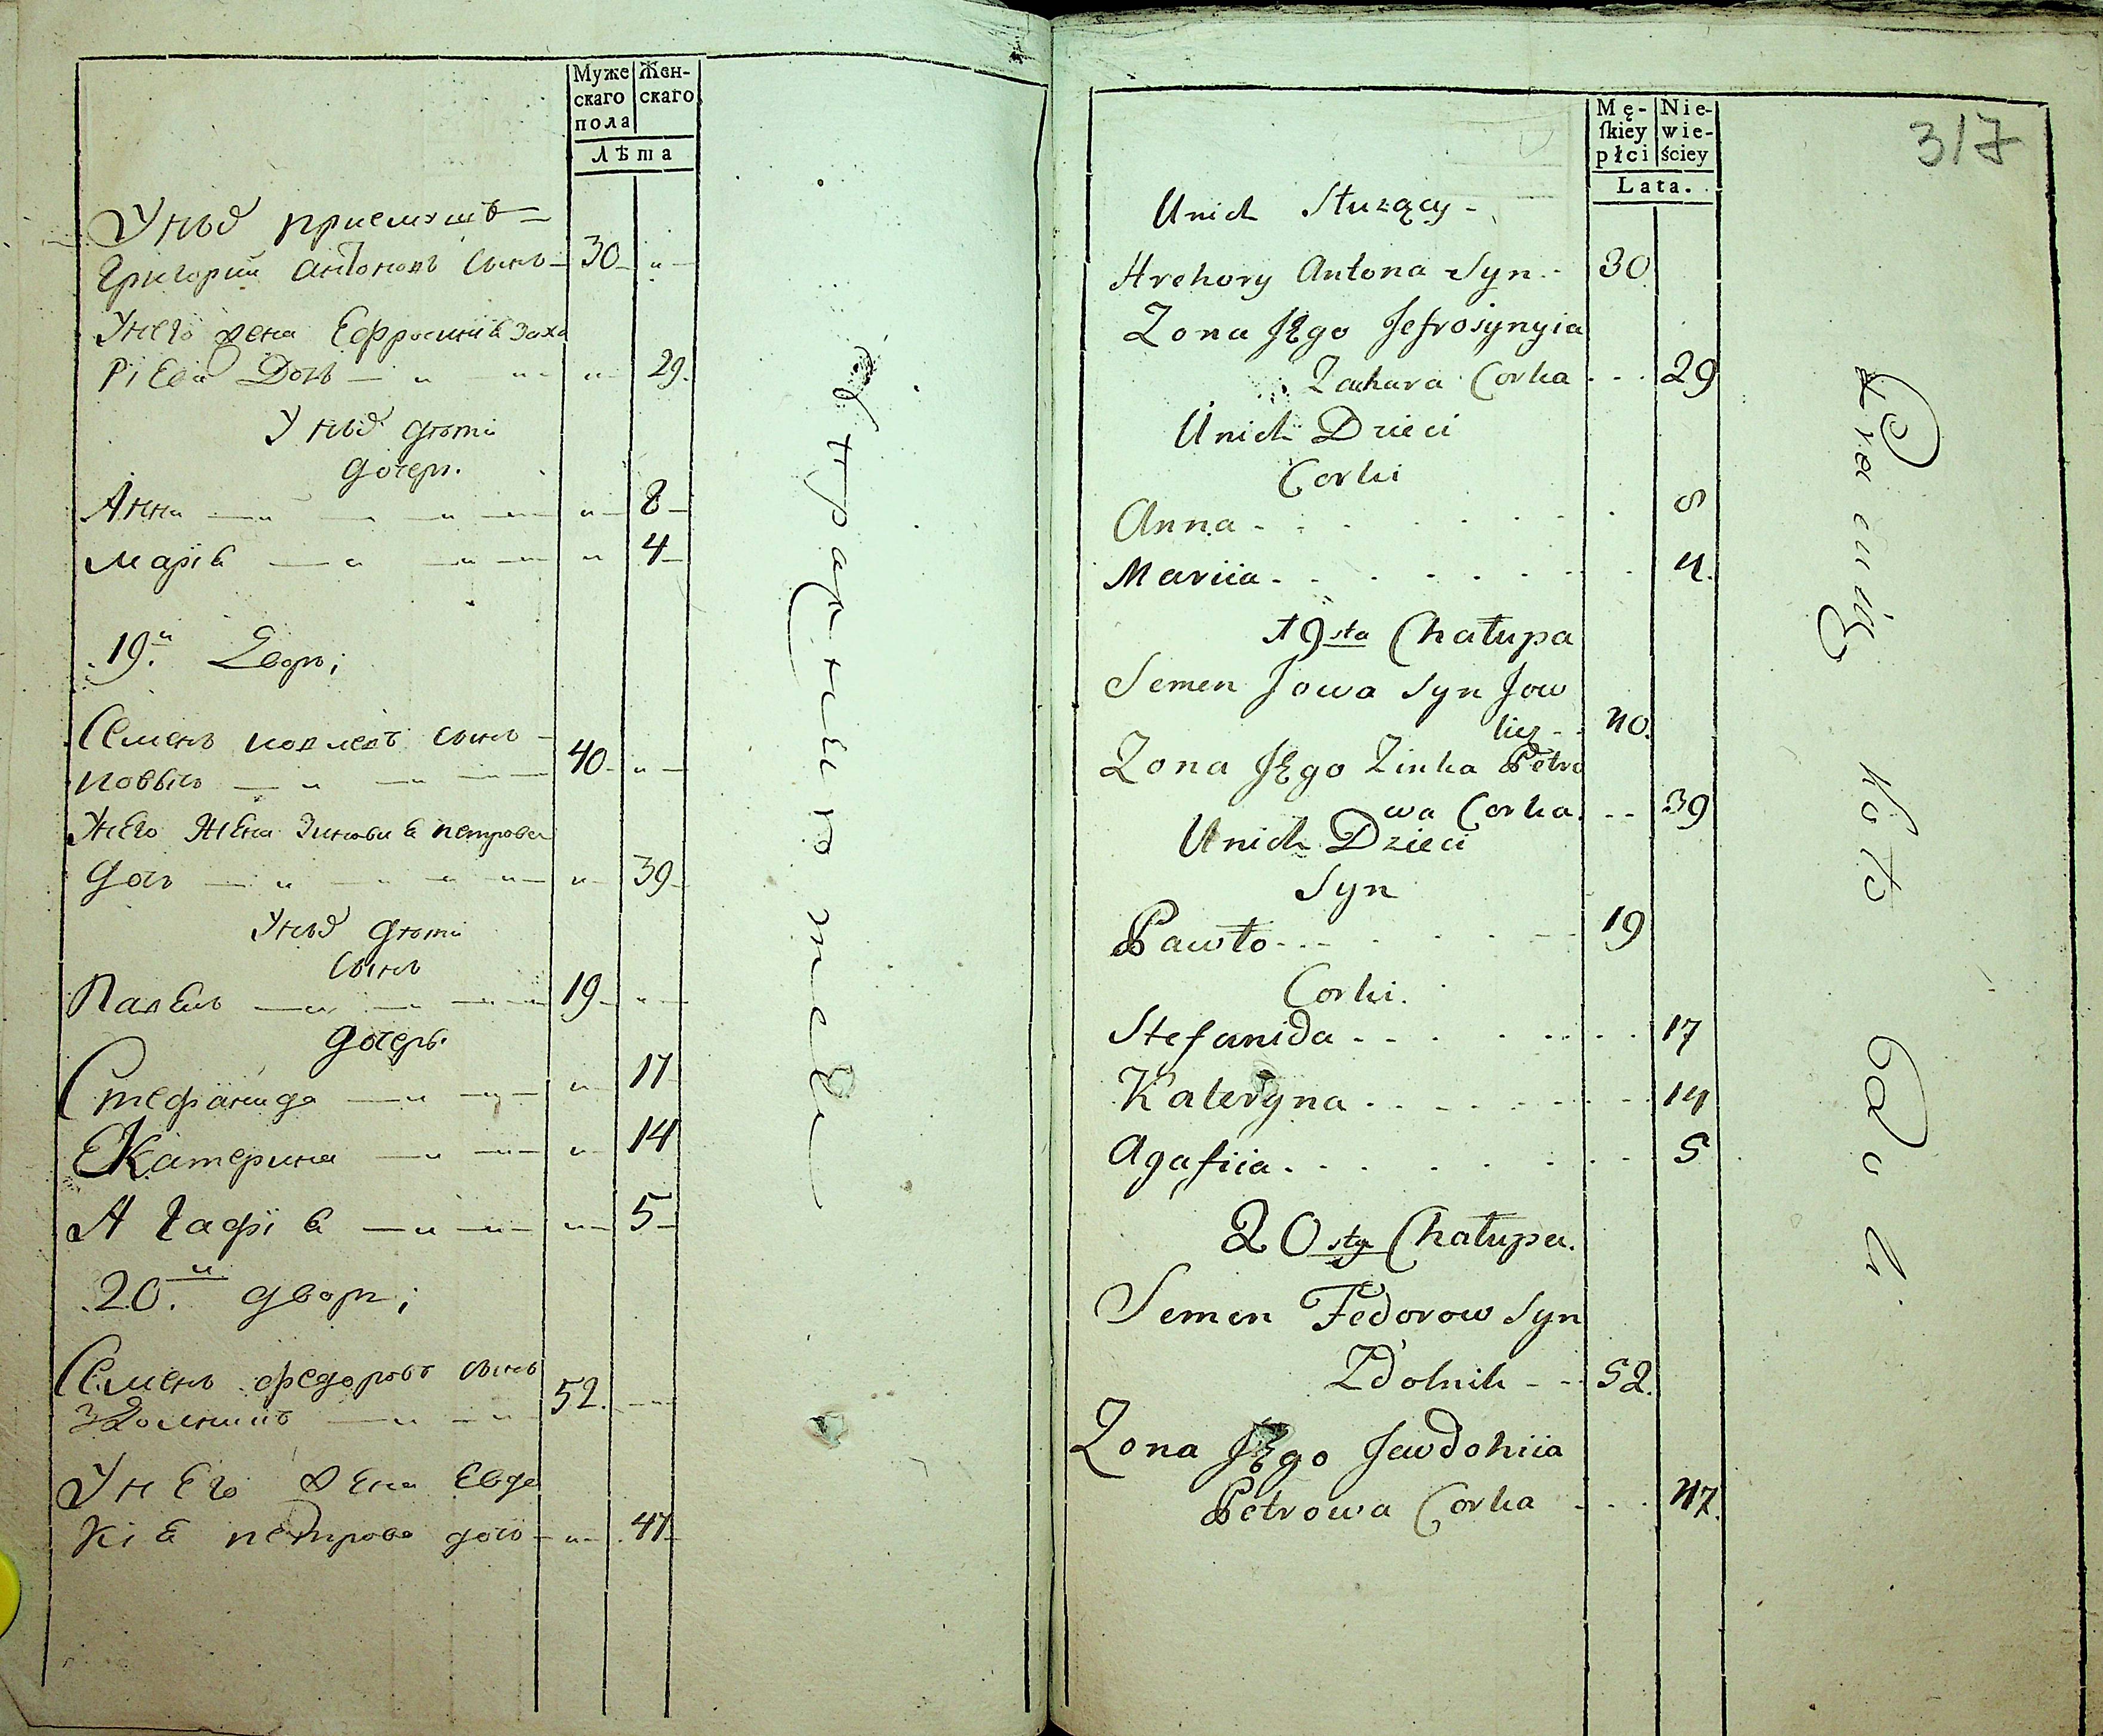 Муже
скаго
пола
Жен-
скаго
Лѣта
Унихъ приемышъ
Григорий Антоновъ сынъ 30 "
Унего жена Ефросиния Заха
риева дочь " 29.
Унихъ дѣти
дочери.
Анна " 8
Мария " 4
19.й Дворъ;
Семенъ иовлевъ сынъ
40 "
Унего жена Зиновия петрова
дочь " 39
Унихъ дѣти
сынъ
Павелъ 19 "
дочерь
Стефанида " 17
Екатерина " 14
Агафия " 5
20.й дворъ;
Семенъ федоровъ сынъ
Здольникъ 52.
Унего жена Евдо
кия петрова дочь " 47
317
Mę-
skiey
płci
Nie-
wie-
ściey
Lata.
Unich Służący -
Hrehory Antona Syn - 30.
Zona Jego Jefrosynyia
Zachara Corka - - - 29
Unich Dzieci
Corki
Anna - - - 8
Mariia - - - 4.
19sta Chałupa
Semen Jowa Syn Jow
40.
Zona Jego Zinka Petro
wa Corka. - - 39
Unich Dzieci
Syn
Pawło - - - 19
Corki.
Stefanida - - - 17
Kateryna - - - 14
Agafiia - - - 5
20sta Chałupa.
Semen Fedorow Syn
Zdolnik - - 52.
Zona Jego Jewdokiia
Petrowa Corka - - - 47.